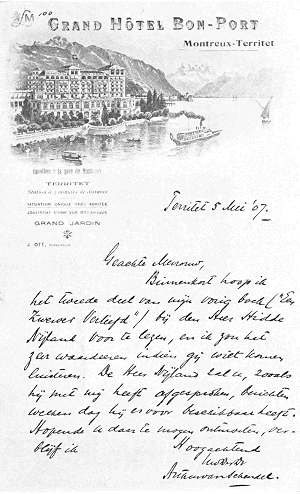 100
GRAND HÔTEL BON-PORT
Montreux-Territet
TERRITET
Station à 3 minutes de distance
SITUATION UNIQUE TRÈS ABRITÉE
JOUISSANT D'UNE VUE MAGNIFIQUE
GRAND JARDIN
J. OTT, DIRECTEUR
Territet 5 Mei '07.
Geachte Mevrouw,
Binnenkort hoop ik
het tweede deel van mijn vorig boek ("Een
Zwerver Verliefd") bij den Heer Hidde
Nijland voor te lezen, en ik zou het
zeer waardeeren indien gij wilt komen
luisteren. De Heer Nijland zal u, zooals
hij met mij heeft afgesproken, berichten
welken dag hij ervoor beschikbaar heeft.
Hopende u daar te mogen ontmoeten, ver-
blijf ik
Hoogachtend
Arthur van Schendel.